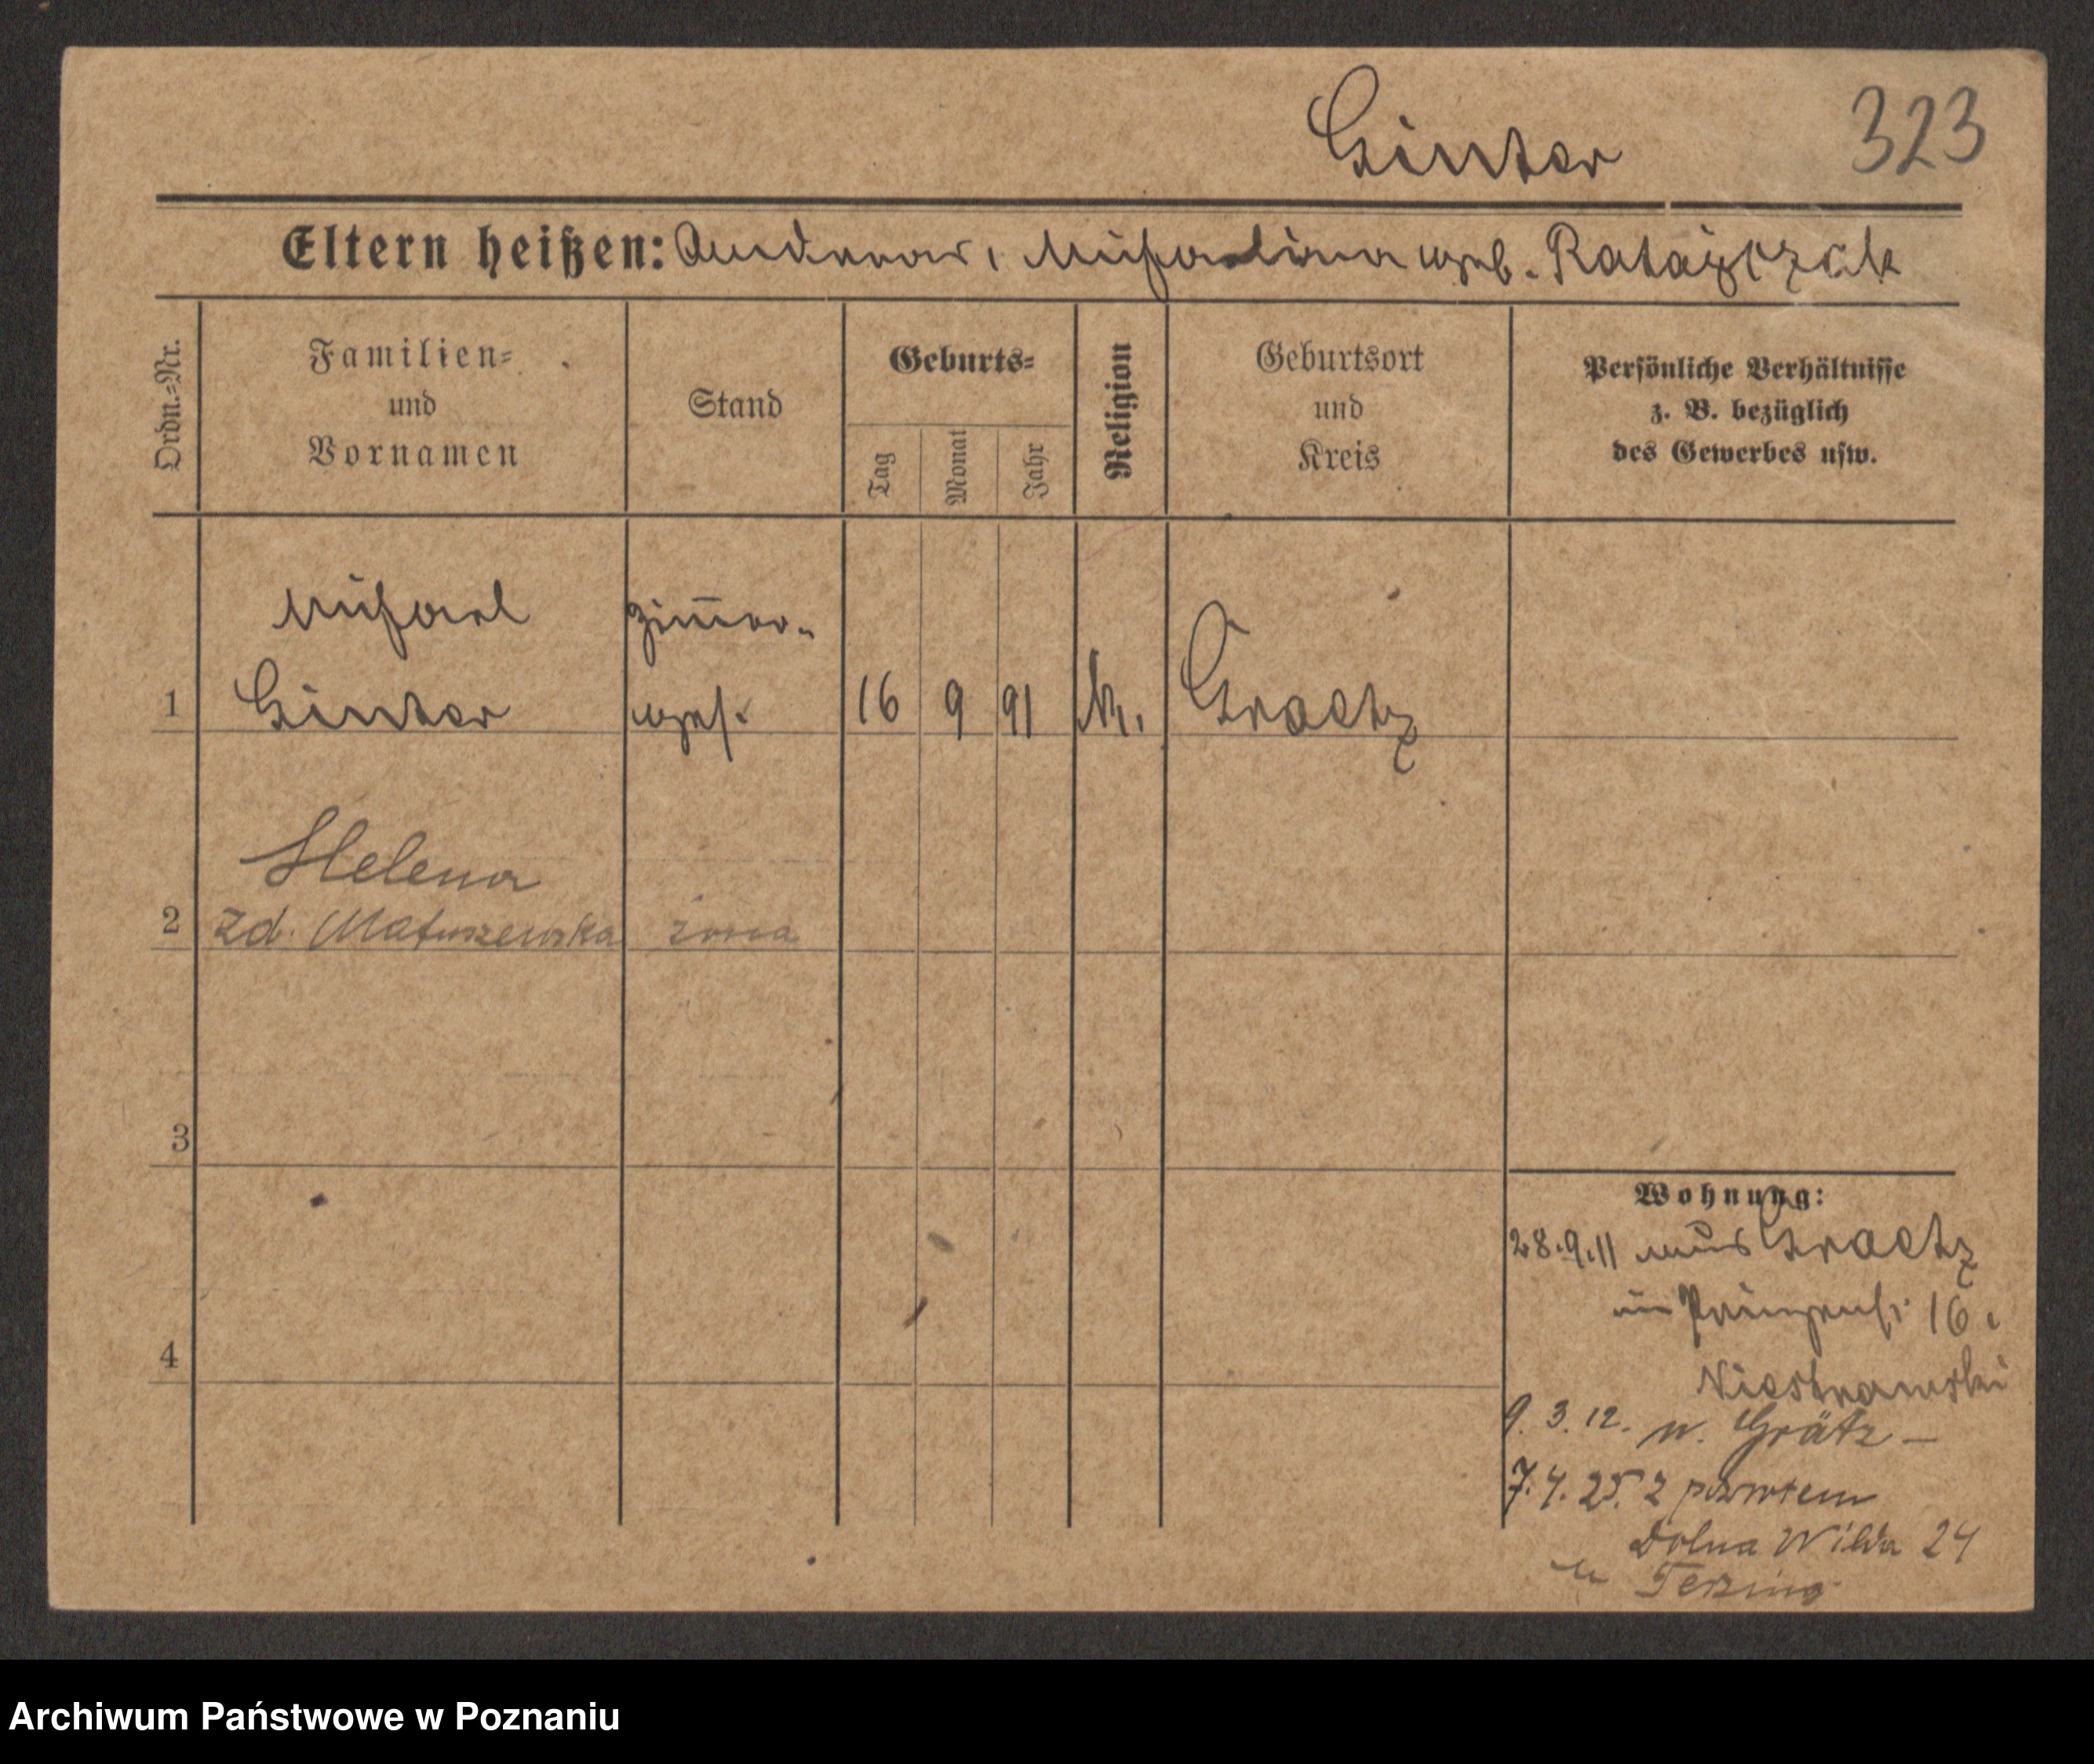 Ginter
323
Eltern heißen: Andreas, Michalina geb. Rataiczak
Ordn.=Nr.
Familien=
und
Vornamen
Stand
Geburts=
Tag
Monat
Jahr
Religion
Geburtsort
und
Kreis
Persönliche Verhältnisse
z. B. bezüglich
des Gewerbes usw.
Michael
Zimmer-
1 Ginter
ges. 16 9 91 k. Graetz
Helena
2 zd. Matuszewska żona
3
Wohnung:
28.9.11 aus Graetz
in Prinzenst. 16.
4
Niestrawski
9. 3. 12. n. Grätz —
7. 4. 25. z powrotem
Dolna Wilda 24
u
Archiwum Państwowe w Poznaniu